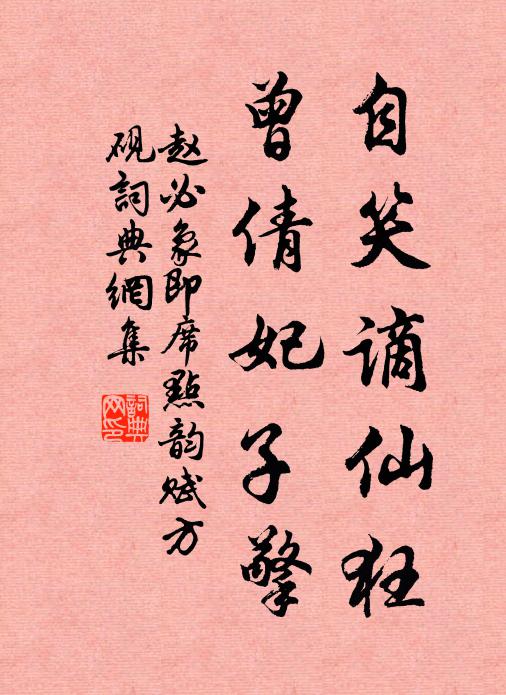 自笑謫仙狂
曾倩妃子擎
赵必象即席點韵赋方
砚詞典網集
詞典網印